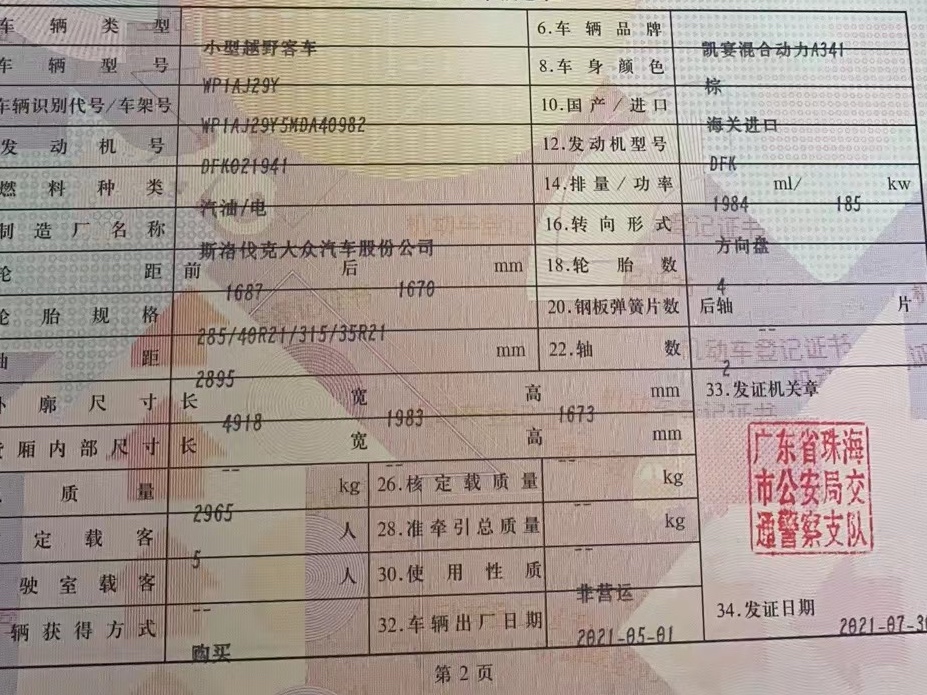 车辆类型 小型越野客车 6.车辆品牌 凯宴混合动力A341
车辆型号 WP1AJ29Y 8.车身颜色 棕
车辆识别代号/车架号 WP1AJ29Y5MDA40982 10.国产/进口 海关进口
发动机号 DFK021941 12.发动机型号 DFK
燃料种类 汽油/电 14.排量/功率 1984 ml/ 185 kw
制造厂名称 斯洛伐克大众汽车股份公司 16.转向形式 方向盘
轮距 前 1687 后 1670 mm 18.轮胎数 4
轮胎规格 285/40R21/315/35R21 20.钢板弹簧片数 后轴 -- 片
轴距 2895 mm 22.轴数 2
外廓尺寸 长 4918 宽 1983 高 1673 mm 33.发证机关章
货厢内部尺寸 长 -- 宽 -- 高 -- mm
质量 2965 kg 26.核定载质量 -- kg
定载客 5 人 28.准牵引总质量 -- kg
驶室载客 -- 人 30.使用性质 非营运
辆获得方式 购买 32.车辆出厂日期 2021-05-01 34.发证日期 2021-07-30
广东省珠海
市公安局交
通警察支队
第2页